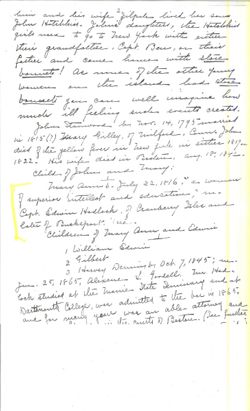 him and his wife Zilpha lived her son
John Hotchkiss. John's daughters, the Hotchkiss
girls used to go to New York with either
their grandfather, Capt Bear, or their
father and came home with store
bonnets! As none of the other young
women on the island had store
bonnets, you can well imagine how
much ill feeling such events created.
John Linwood, b. Nov. 14, 1795 married
in 1815(?) Mary Gilley, of Milford, Conn. John
died of the yellow fever in New York in either 1817 or
1822. His wife died in Boston, Aug. 1st 1872.
Child of John and Mary:
Mary Ann b. July 22, 1816, "a woman
of superior intellect and education", m.
Capt. Edwin Hadlock, of Cranberry Isles and
later of Bucksport, Me.
Children of Mary Ann and Edwin
1 William Edwin
2 Gilbert
3 Harvey Deming b. Oct. 7, 1845; m.
Jan. 26, 1865, Alexene L. Goodell. Mr. Had-
lock studied at the Maine State Seminary and at
Dartmouth College, was admitted to the bar in 1865
and for many years was an able attorney and
in the courts of Boston. See further